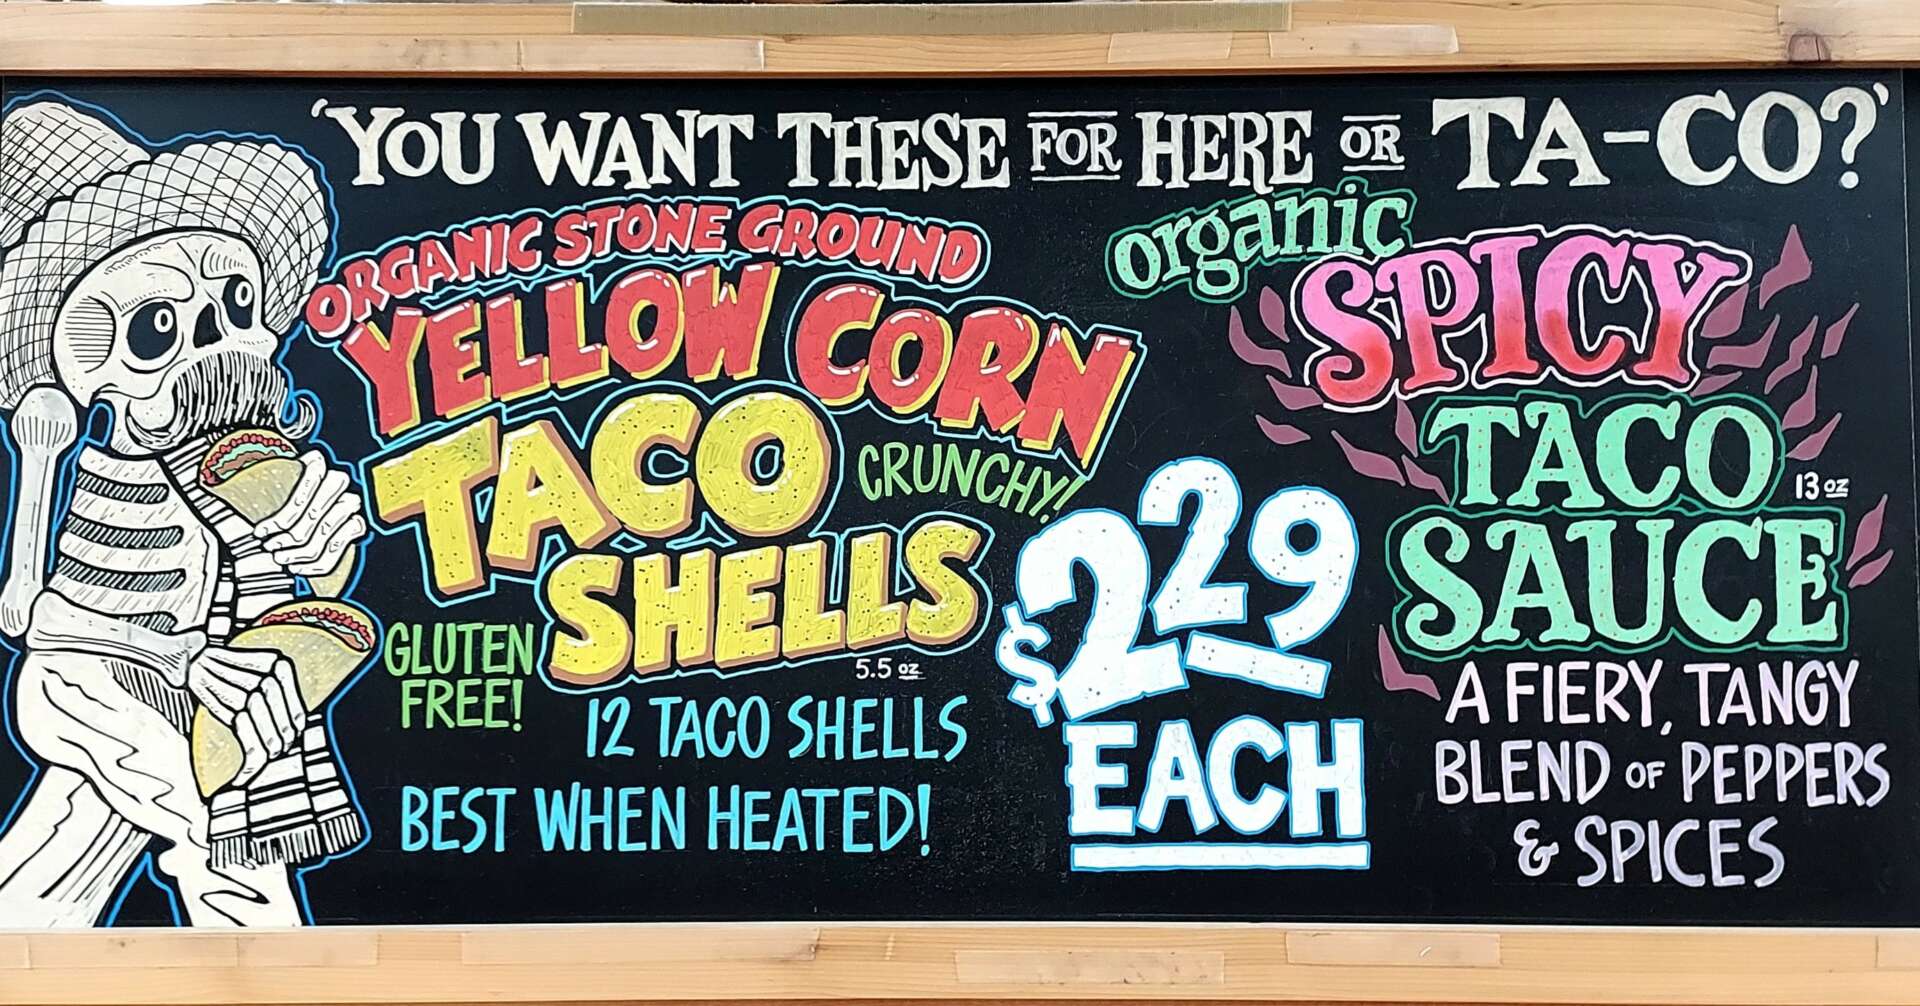 'YOU WANT THESE FOR HERE OR TA-CO?'
ORGANIC STONE GROUND
YELLOW CORN
TACO
SHELLS
CRUNCHY!
5.5 oz
GLUTEN
FREE!
12 TACO SHELLS
BEST WHEN HEATED!
$2.29
EACH
organic
SPICY
TACO
SAUCE
13 oz
A FIERY, TANGY
BLEND OF PEPPERS
& SPICES